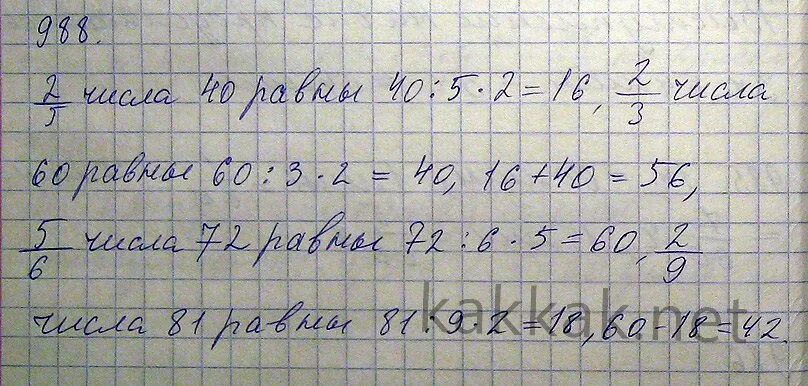 988.
2/5 числа 40 равны 40 : 5 · 2 = 16, 2/3 числа
60 равны 60 : 3 · 2 = 40, 16 + 40 = 56,
5/6 числа 72 равны 72 : 6 · 5 = 60, 2/9
числа 81 равны 81 : 9 · 2 = 18, 60 - 18 = 42.
kakkak.net